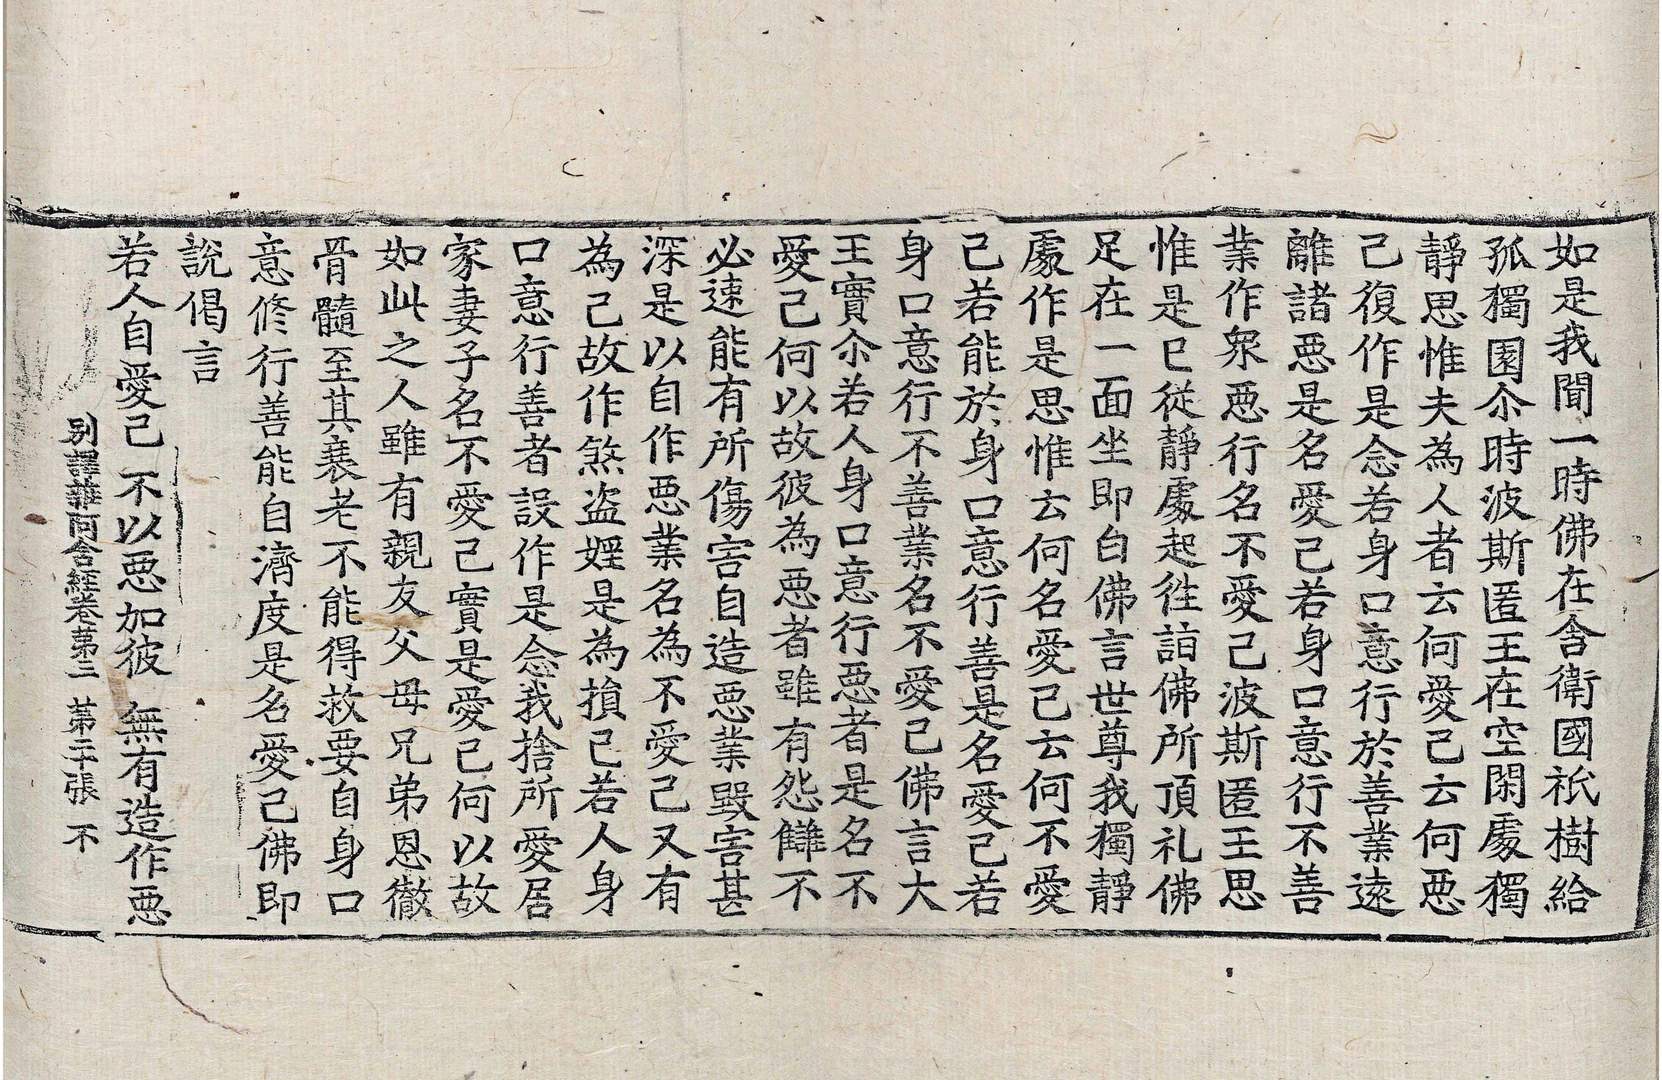 如是我聞一時佛在舍衛國祇樹給
孤獨園尒時波斯匿王在空閑處獨
靜思惟夫為人者云何愛己云何惡
己復作是念若身口意行於善業遠
離諸惡是名愛己若身口意行不善
業作衆惡行名不愛己波斯匿王思
惟是已從靜處起往詣佛所頂礼佛
足在一面坐即白佛言世尊我獨靜
處作是思惟云何名愛己云何不愛
己若能於身口意行善是名愛己若
身口意行不善業名不愛己佛言大
王實尒若人身口意行惡者是名不
愛己何以故彼為惡者雖有怨讎不
必速能有所傷害自造惡業毀害甚
深是以自作惡業名為不愛己又有
為己故作煞盜婬是為損己若人身
口意行善者設作是念我捨所愛居
家妻子名不愛己實是愛己何以故
如此之人雖有親友父母兄弟恩徹
骨髓至其衰老不能得救要自身口
意修行善能自濟度是名愛己佛即
說偈言
若人自愛己 不以惡加彼 無有造作惡
別譯雜阿含經卷第三 第二張 不